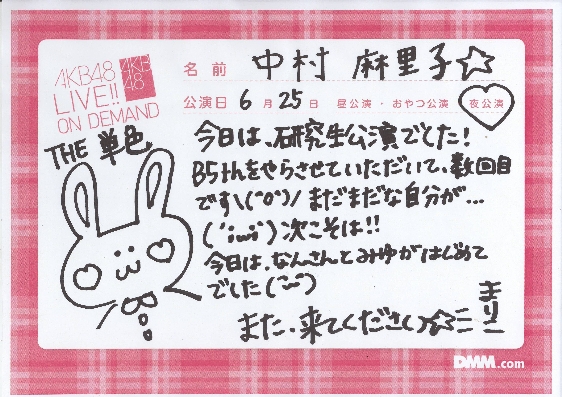 AKB48
LIVE!!
ON DEMAND
AKB
48
名前 中村 麻里子☆
公演日 6月25日 昼公演・おやつ公演 夜公演
THE 単色
今日は、研究生公演でした!
B5thをやらさせていただいて、数回目
です\(^o^)/まだまだな自分が...
(´;ω;`)次こそは!!
今日は、なんさんとみゆがはじめて
でした(
また、来てください☆ミニ
まりこ
DMM.com